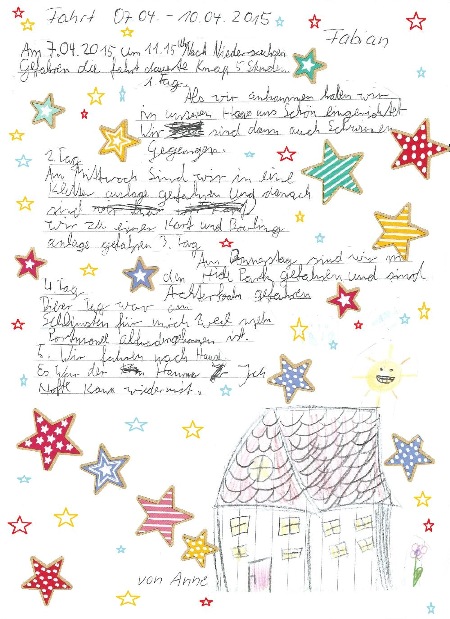 Fahrt 07.04. - 10.04.2015
Fabian
Am 7.04.2015 um 11.15 Uhr Nach Niedersachsen
Gefahren die fahrt dauerte Knapp 5 Stunde.
1 Tag.
Als wir ankammen haben wir
in unseren Haus uns schön eingerichtet
Wir sind dann auch Schwimmen
Gegangen.
2 Tag
Am Mittwoch Sind wir in eine
Kletter anlage gefahren und danach
wir zu einen Kart und Bowling
anlage gefahren 3. Tag
Am Donnerstag sind wir in
den Heide Park gefahren und sind
Achterbahn gefahren
4 Tag.
Dieser Tag war am
für mich weil mein
ist.
5. Wir fahren nach Haus.
Es war der Hammer Ich
Kann wiedermit.
von Anne